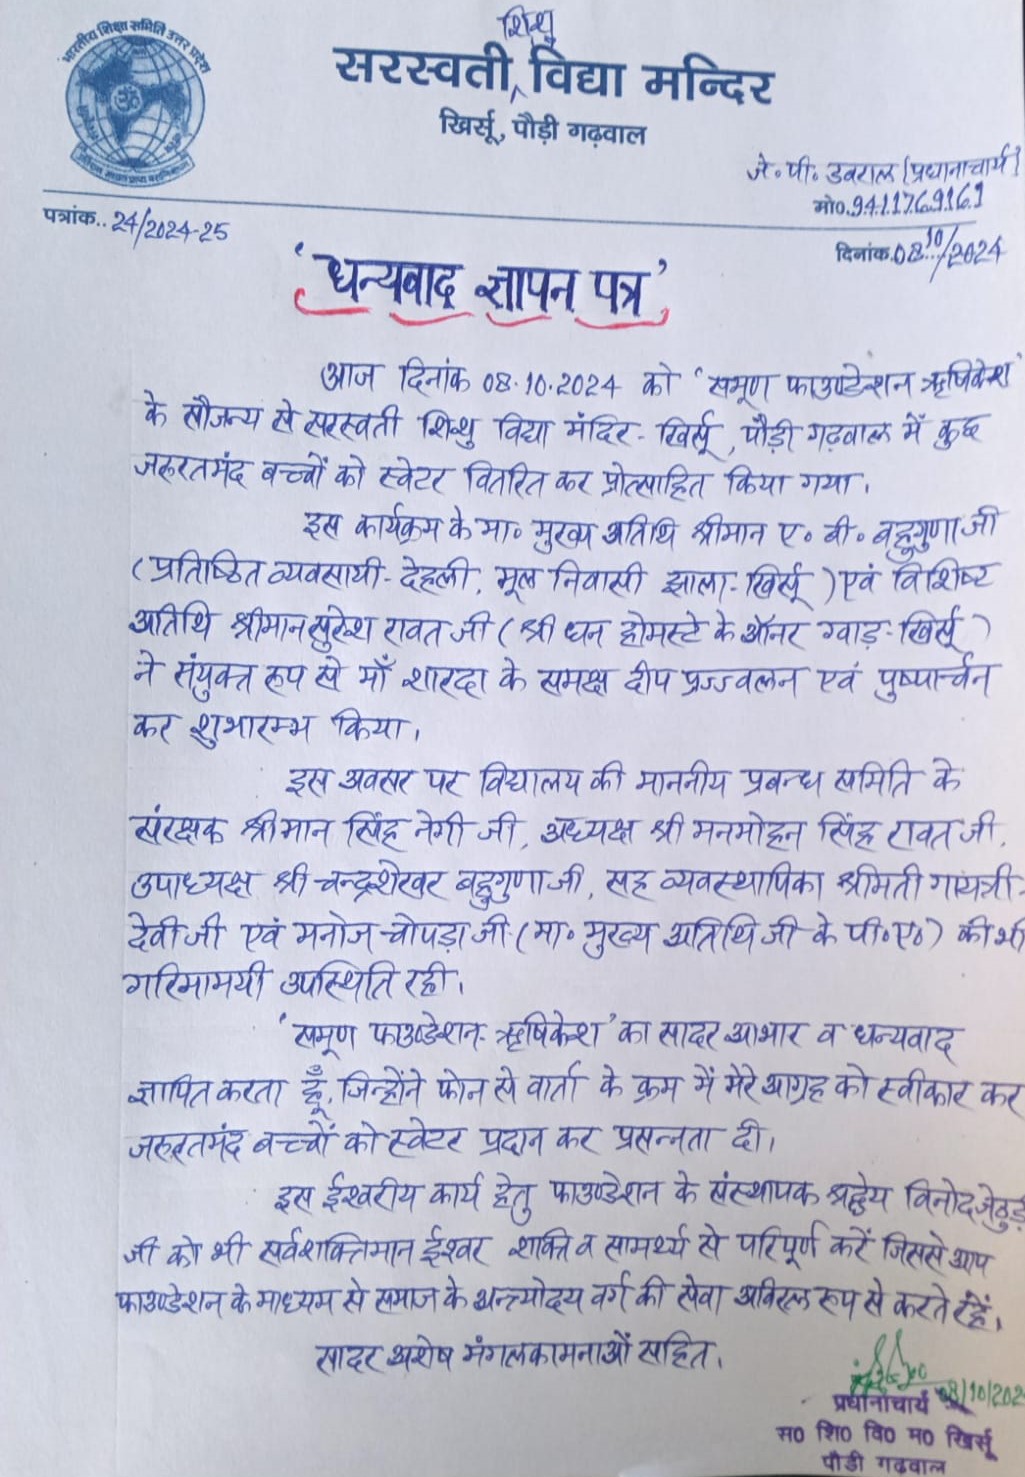 भारतीय शिक्षा समिति उत्तर प्रदेश
शिशु
सरस्वती विद्या मन्दिर
खिर्सू, पौड़ी गढ़वाल
जे॰ पी॰ डबराल (प्रधानाचार्य)
मो0.9411769161
पत्रांक.. 24/2024-25
दिनांक.08/10/2024
'धन्यवाद ज्ञापन पत्र'
आज दिनांक 08.10.2024 को 'समूण फाउण्डेशन ऋषिकेश'
के सौजन्य से सरस्वती शिशु विद्या मंदिर - खिर्सू, पौड़ी गढ़वाल में कुछ
जरूरतमंद बच्चों को स्वेटर वितरित कर प्रोत्साहित किया गया।
इस कार्यक्रम के मा॰ मुख्य अतिथि श्रीमान ए॰ बी॰ बहुगुणा जी
(प्रतिष्ठित व्यवसायी - देहली, मूल निवासी झाला - खिर्सू) एवं विशिष्ट
अतिथि श्रीमान सुरेश रावत जी (श्री धन होमस्टे के ऑनर ग्वाड़ - खिर्सू)
ने संयुक्त रूप से माँ शारदा के समक्ष दीप प्रज्ज्वलन एवं पुष्पार्चन
कर शुभारम्भ किया।
इस अवसर पर विद्यालय की माननीय प्रबन्ध समिति के
संरक्षक श्री मान सिंह नेगी जी, अध्यक्ष श्री मनमोहन सिंह रावत जी,
उपाध्यक्ष श्री चन्द्रशेखर बहुगुणा जी, सह व्यवस्थापिका श्रीमती गायत्री
देवी जी एवं मनोज चोपड़ा जी (मा॰ मुख्य अतिथि जी के पी॰ए॰) की भी
गरिमामयी उपस्थिति रही।
'समूण फाउण्डेशन - ऋषिकेश' का सादर आभार व धन्यवाद
ज्ञापित करता हूँ, जिन्होंने फोन से वार्ता के क्रम में मेरे आग्रह को स्वीकार कर
जरूरतमंद बच्चों को स्वेटर प्रदान कर प्रसन्नता दी।
इस ईश्वरीय कार्य हेतु फाउण्डेशन के संस्थापक श्रद्धेय विनोद जेठुड़ी
जी को भी सर्वशक्तिमान ईश्वर शक्ति व सामर्थ्य से परिपूर्ण करें जिससे आप
फाउण्डेशन के माध्यम से समाज के अन्त्योदय वर्ग की सेवा अविरल रूप से करते रहें।
सादर अशेष मंगलकामनाओं सहित।
08/10/202
प्रधानाचार्य
स0 शि0 वि0 म0 खिर्सू
पौडी गढवाल